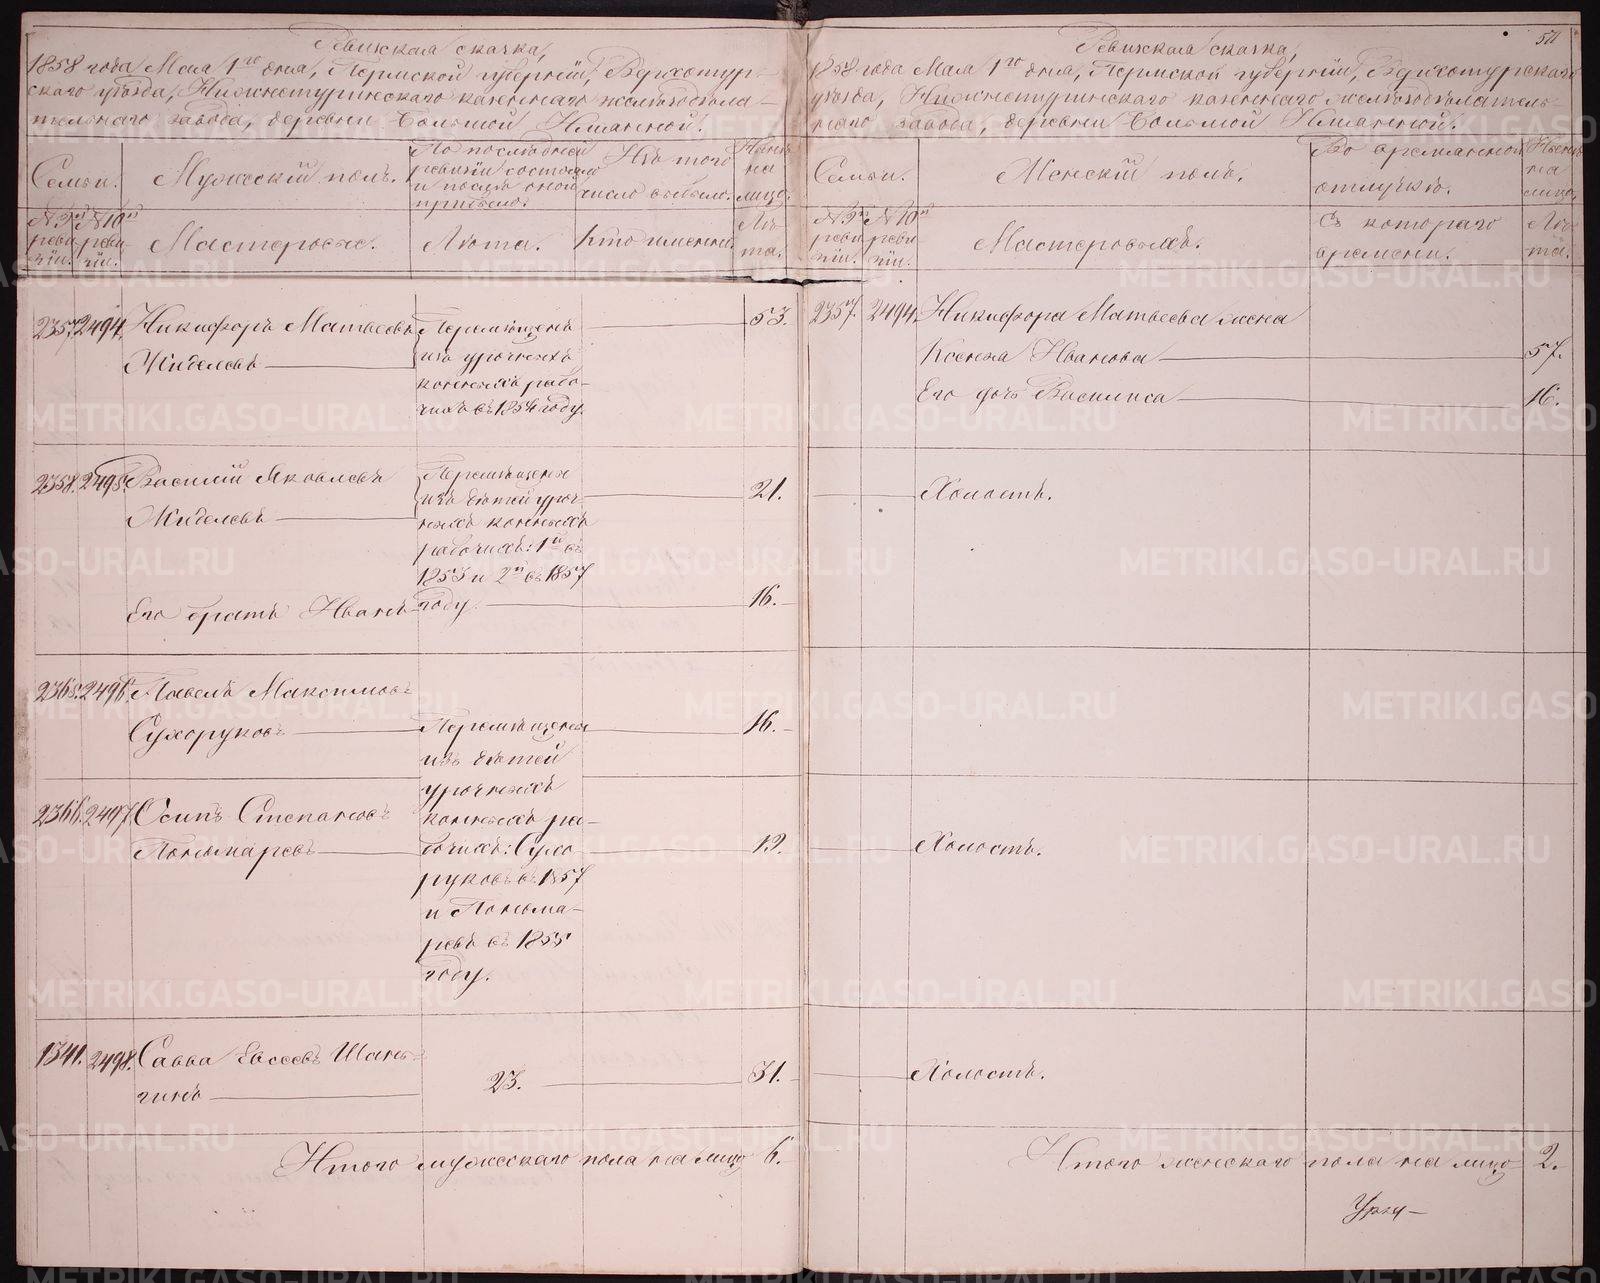 Ревизская сказка,
1858 года Мая 1го дня, Пермской губернiи, Верхотур-
скаго уѣзда, Нижнетуринскаго казеннаго желѣзодѣла-
тельнаго завода, деревни Большой Именной.
Семьи.
Мужескiй полъ.
По последней
ревизiи состояло
и послѣ оной
прибыло.
Изъ того
числа выбыло.
Нынѣ
на
лицо.
№ 9й
реви-
зiи.
№ 10й
реви-
зiи.
Мастеровые.
Лѣта.
Кто именно.
Лѣ-
та.
2357. 2494. Никифоръ Матвеевъ
Жиделевъ
Перемѣщенъ
изъ урочныхъ
конныхъ рабо-
чихъ въ 1854 году.
53.
2358. 2495. Василiй Яковлевъ
Жиделевъ
Перемѣщены
изъ дѣтей уроч-
ныхъ конныхъ
рабочихъ: 1й въ
1853 и 2й въ 1857
году.
21.
Его братъ Иванъ
16.
2365. 2496. Павелъ Максимовъ
Сухоруковъ
16.
Перемѣщены
изъ дѣтей
урочныхъ
конныхъ ра-
бочихъ: Сухо
руковъ въ 1857
и Поныма-
ревъ въ 1855
году.
2366. 2497. Осипъ Степановъ
Понымаревъ
19.
1341. 2498. Савва Евсеевъ Шань-
гинъ
23.
31.
Итого мужескаго пола на лицо 6.
511
Ревизская сказка,
1858 года Мая 1го дня, Пермской губернiи, Верхотурскаго
уѣзда, Нижнетуринскаго казеннаго желѣзодѣлатель-
наго завода, деревни Большой Именной.
Семьи.
Женскiй полъ.
Во временной
отлучкѣ.
Нынѣ
на
лицо.
№ 9й
реви-
зiи.
№ 10й
реви-
зiи.
Мастеровыхъ.
Съ котораго
времени.
Лѣ-
та.
2357. 2494. Никифора Матвеева жена
Ксенья Иванова 57.
Его дочь Василиса 16.
Холостъ.
Холостъ.
Холостъ.
Итого женскаго пола на лицо 2.
METRIKI.GASO-URAL.RU